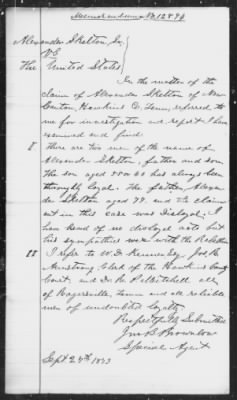 Memorandum No. 12894
Alexander Skelton, Sr.
vs
The United States
In the matter of the
claim of Alexander Skelton of New
Canton, Hawkins Co. Tenn, referred to
me for investigation and report I have
examined and find
I
there are two men of the name of
Alexander Skelton, father and son
the son aged 50 or 60 has always been
thoroughly loyal. The father, Alexan-
der Skelton aged 79, and the claim-
ant in this case was Disloyal. I
can hear of no disloyal acts but
his sympathies were with the Rebellion
II
I refer to W. D. Kenner Esq. Jos. R.
Armstrong, Clerk of the Hawkins County
Court, and Dr. R. all
of Rogersville, Tenn and all reliable
men of undoubted loyalty
Respectfully Submitted
Jno. B. Brownlow
Special Agent
Sept 24th 1873